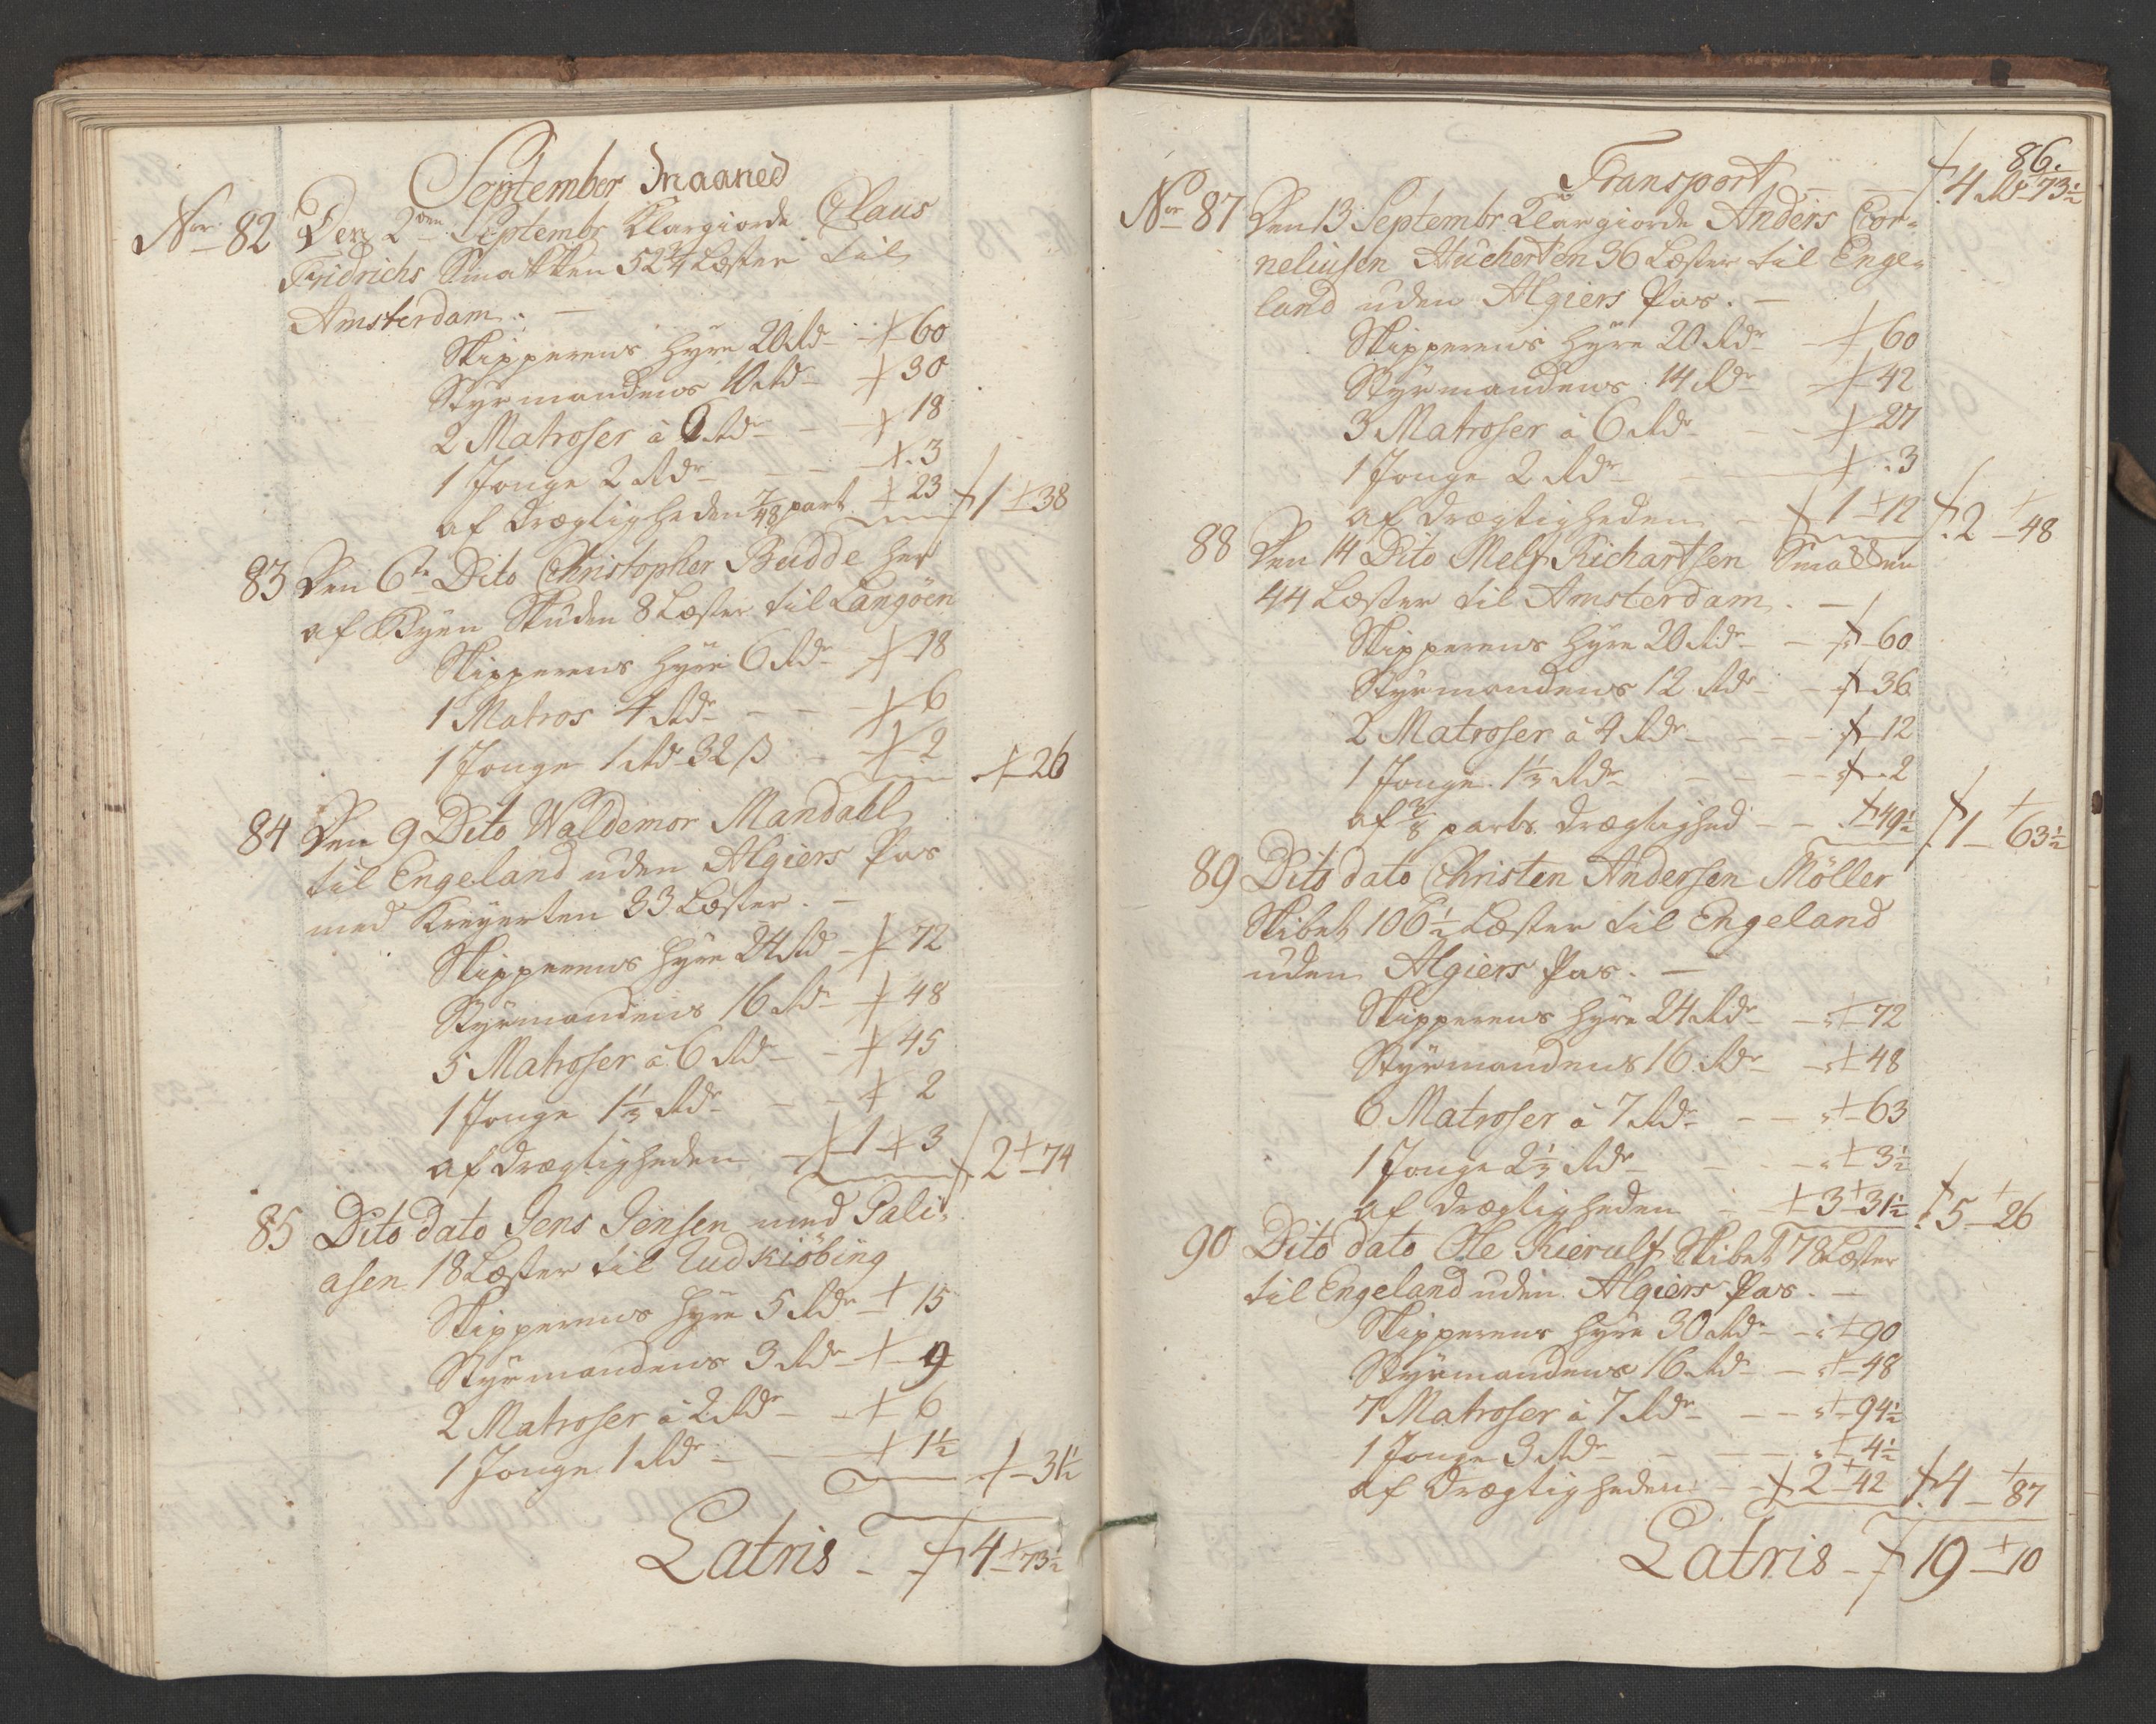 September Maaned
No 82 Den 2den Septembr Klargiorde Claus
Fridrichs Smakken 52¾ Læster til
Amsterdam. —
Skipperens Hyre 20 Rdr - 60
Styrmandens 10 Rdr - 30
2 Matroser à 6 Rdr - 18
1 Jonge 2 Rdr - 3
af Drægtigheden 7/48 part 23 1 38
83 Den 6te Dito Christopher Budde her
af Byen Skuden 8 Læster til Langöen
Skipperens Hyre 6 Rdr 18
1 Matros 4 Rdr - 6
1 Jonge 1 Rdr 32 β - 2 26
84 Den 9 Dito Waldemor Mandahl
til Engeland uden Algiers Pas
med Kreyerten 33 Læster. —
Skipperens Hyre 24 Rd - 72
Styrmandens 16 Rdr 48
5 Matroser à 6 Rdr - 45
1 Jonge 1⅓ Rdr - 2
af Drægtigheden - 1 3 2 74
85 Dito dato Jens Jensen med Gali-
asen 18 Læster til Rudkiöbing
Skipperens Hyre 5 Rdr 15
Styrmandens 3 Rdr 9
2 Matroser à 2 Rdr - 6
1 Jonge 1 Rdr - 1½ 31½
Latris - 4 73½
86.
Transport - 4 Mk 73½
No 87 Den 13 Septembr Klargiorde Anders Cor-
neliusen Huckerten 36 Læster til Enge-
land uden Algiers Pas. —
Skipperens Hyre 20 Rdr - 60
Styrmandens 14 Rdr 42
3 Matroser à 6 Rdr - 27
1 Jonge 2 Rdr - 3
af Drægtigheden - 1 12 2 48
88 Den 14 Dito Melf Richartsen Smakken
44 Læster til Amsterdam. —
Skipperens Hyre 20 Rdr - 60
Styrmandens 12 Rdr - 36
2 Matroser à 4 Rdr - 12
1 Jonge 1⅓ Rdr - 2
af ⅜ parts Drægtighed - 49½ 1 63½
89 Dito dato Christen Andersen Möller
Skibet 106½ Læster til Engeland
uden Algiers Pas. —
Skipperens Hyre 24 Rdr - 72
Styrmandens 16 Rdr - 48
6 Matroser à 7 Rdr - 63
1 Jonge 2⅓ Rdr - 3½
af Drægtigheden - 3 31½ 5 26
90 Dito dato Ole Kierulf Skibet 78 Læster
til Engeland uden Algiers Pas. —
Skipperens Hyre 30 Rdr - 90
Styrmandens 16 Rd - 48
7 Matroser à 7 Rdr - 94½
1 Jonge 3 Rdr - 4½
af Drægtigheden - 2 42 4 87
Latris - 19 10